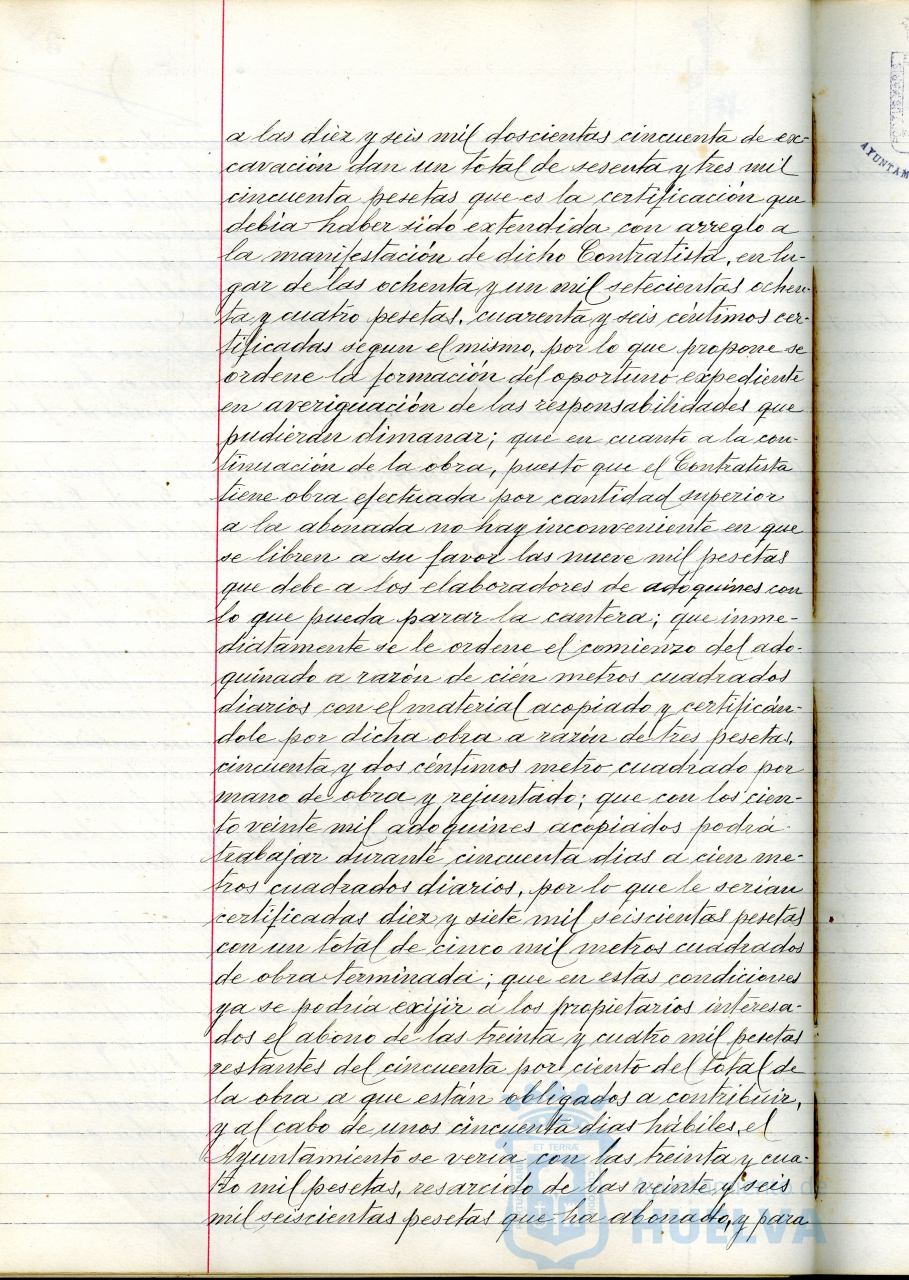 a las diez y seis mil doscientas cincuenta de ex-
cavación dan un total de sesenta y tres mil
cincuenta pesetas que es la certificación que
debia haber sido extendida con arreglo a
la manifestación de dicho Contratista, en lu-
gar de las ochenta y un mil setecientas ochen-
ta y cuatro pesetas, cuarenta y seis céntimos cer-
tificadas segun el mismo, por lo que propone se
ordene la formación del oportuno expediente
en averiguación de las responsabilidades que
pudieran dimanar; que en cuanto a la con-
tinuación de la obra, puesto que el Contratista
tiene obra efectuada por cantidad superior
a la abonada no hay inconveniente en que
se libren a su favor las nueve mil pesetas
que debe a los elaboradores de adoquines con
lo que pueda parar la cantera; que inme-
diatamente se le ordene el comienzo del ado-
quinado a razón de cién metros cuadrados
diarios con el material acopiado y certificán-
dole por dicha obra a razón de tres pesetas,
cincuenta y dos céntimos metro cuadrado por
mano de obra y rejuntado; que con los cien-
to veinte mil adoquines acopiados podrá
trabajar durante cincuenta dias a cien me-
tros cuadrados diarios, por lo que le serian
certificadas diez y siete mil seiscientas pesetas
con un total de cinco mil metros cuadrados
de obra terminada; que en estas condiciones
ya se podría exijir á los propietarios interesa-
dos el abono de las treinta y cuatro mil pesetas
restantes del cincuenta por ciento del total de
la obra a que están obligados a contribuir,
y al cabo de unos cincuenta dias hábiles, el
Ayuntamiento se vería con las treinta y cua-
tro mil pesetas, resarcido de las veinte y seis
mil seiscientas pesetas que ha abonado, y para
AYUNTAM
ET TERRÆ
Ayuntamiento de
HUELVA